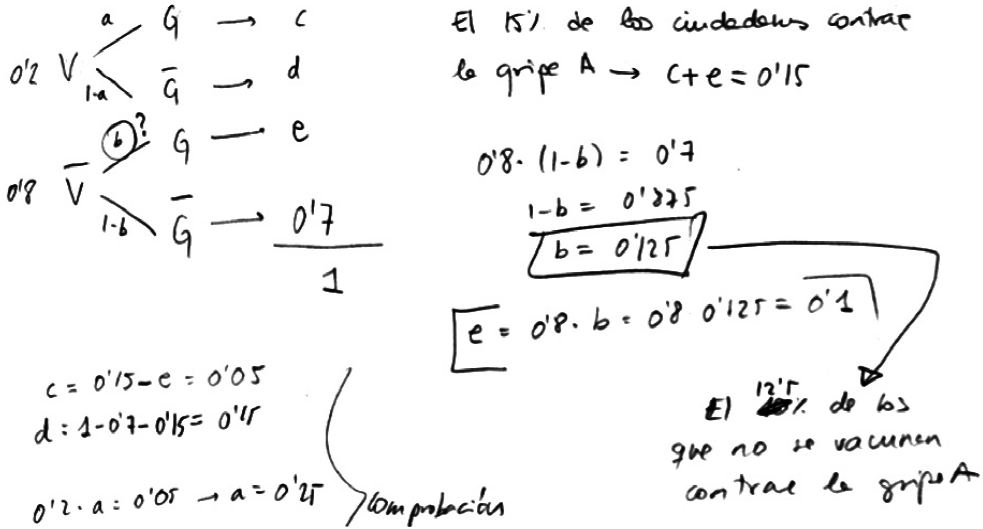 a G → c
0'2 V
1-a G̅ → d
b ? G → e
0'8 V̅
1-b G̅ → 0'7
1
El 15% de los ciudadanos contrae
la gripe A → c+e = 0'15
0'8 · (1-b) = 0'7
1-b = 0'875
b = 0'125
e = 0'8 · b = 0'8 · 0'125 = 0'1
c = 0'15 - e = 0'05
d = 1-0'7-0'15 = 0'15
0'2 · a = 0'05 → a = 0'25
comprobación
El 12'5% de los
que no se vacunan
contrae la gripe A